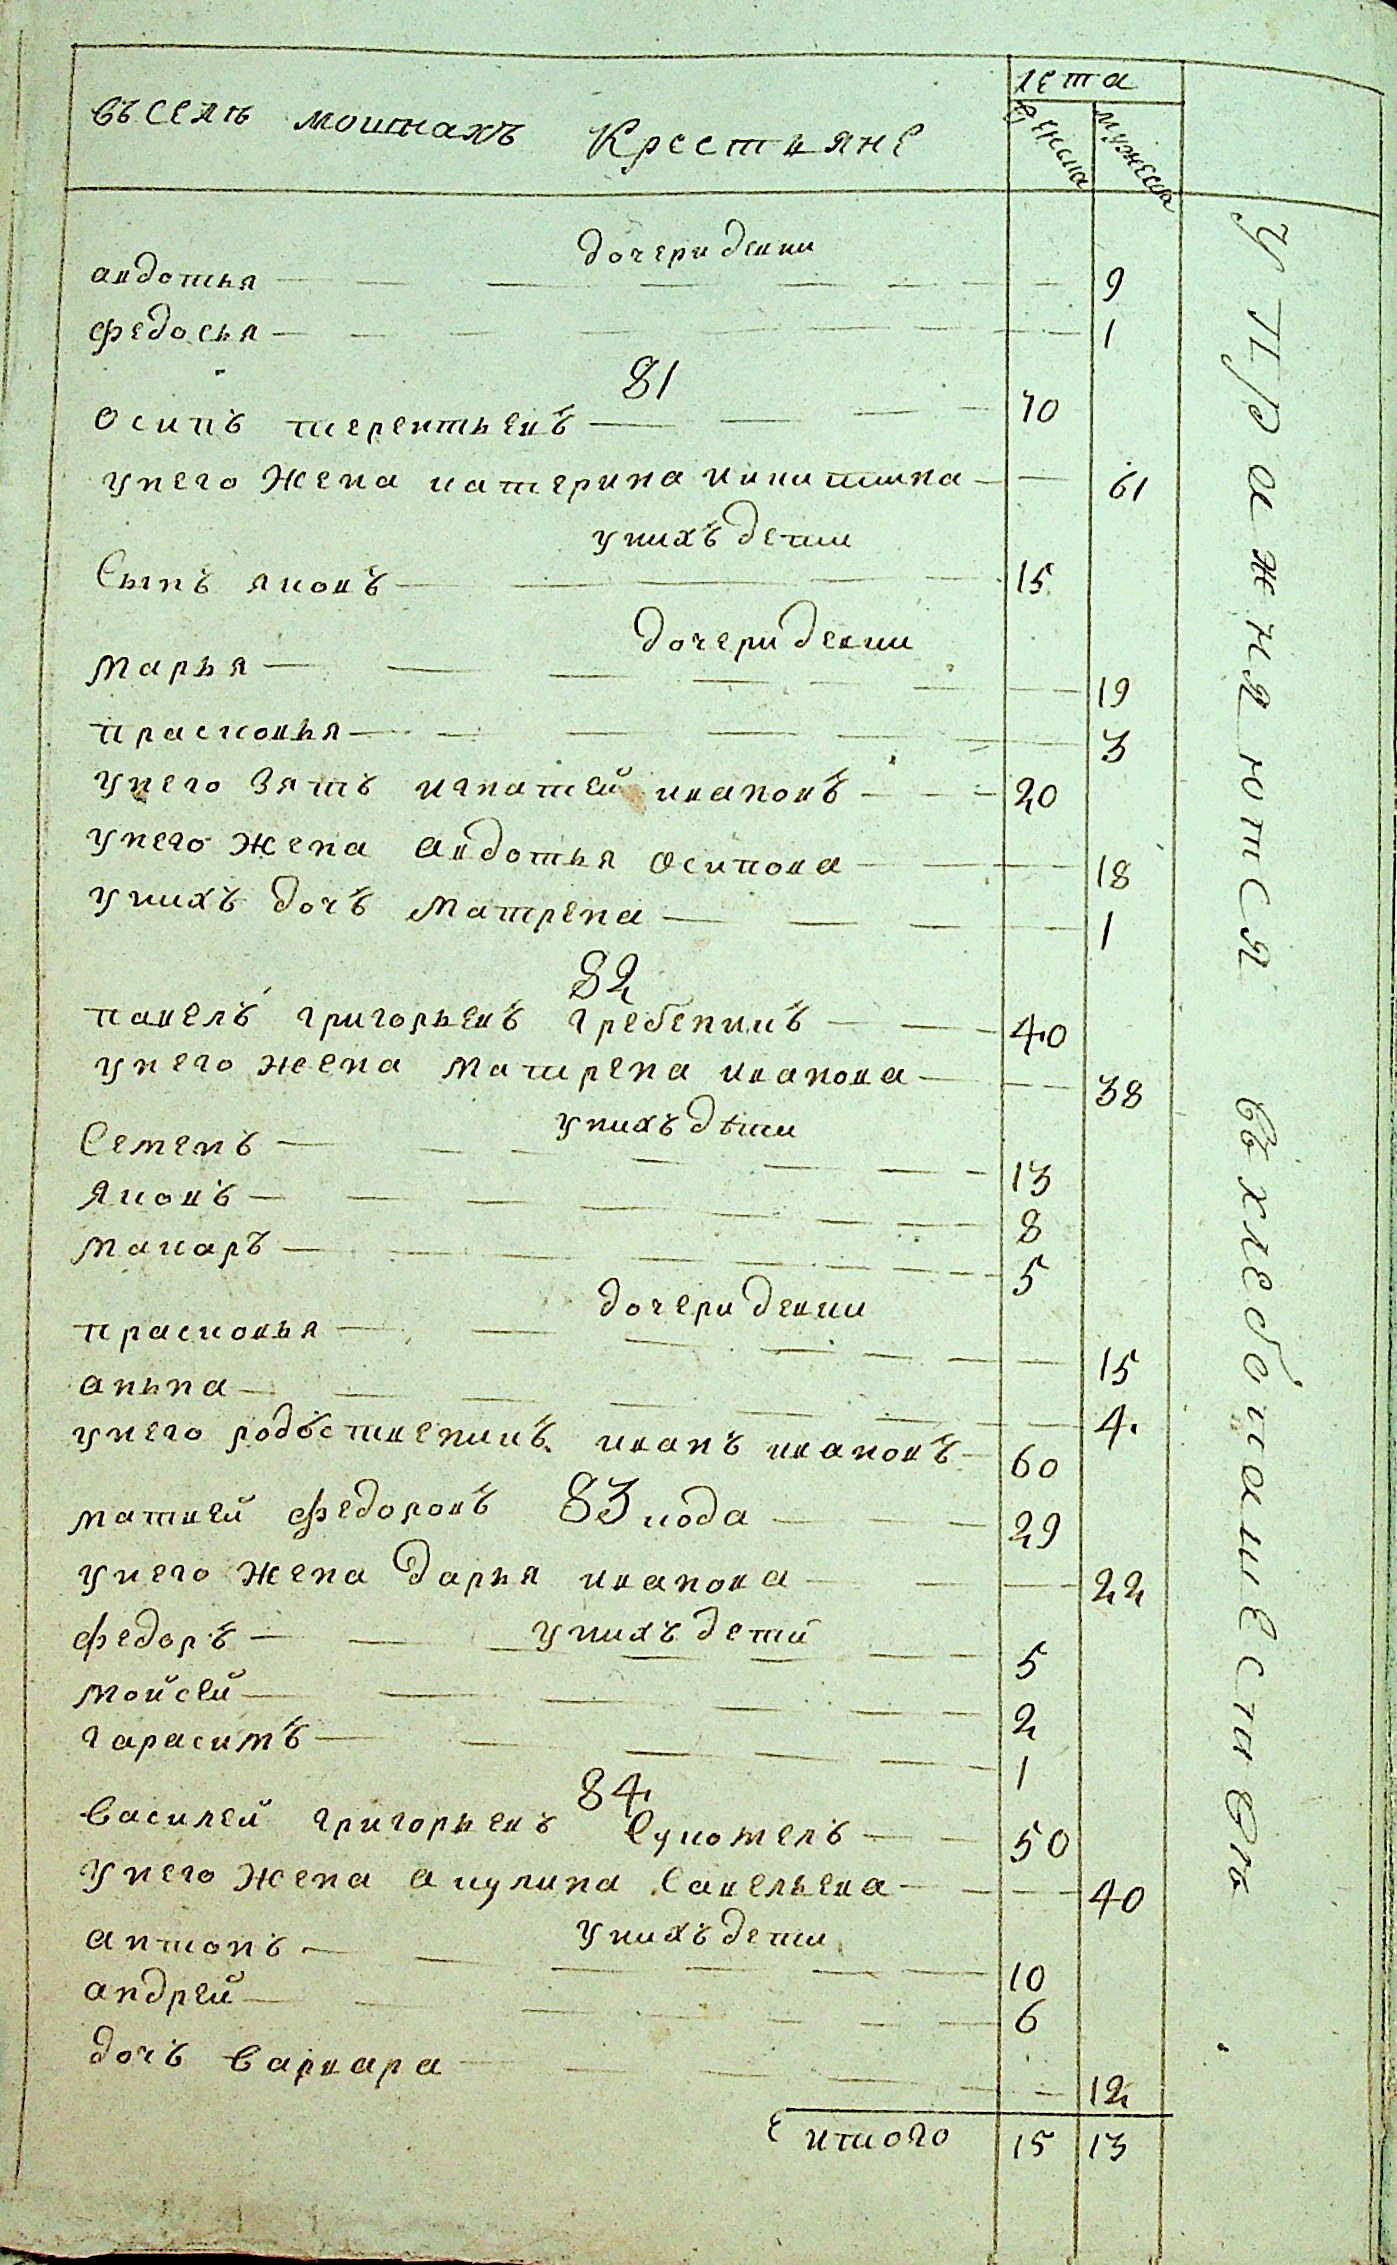 въ селѣ мошнахъ Крестьяне
лета
женска
мужеска
дочери девки
авдотья 9
федосья 1
81
осипъ терентьевъ 70
унего жена катерина никитина 61
унихъ дети
Сынъ яковъ 15
дочери девки
марья 19
прасковья 3
унего зять игнатей ивановъ 20
унего жена авдотья осипова 18
унихъ дочь матрена 1
82
павелъ григорьевъ гребеникъ 40
унего жена матрена иванова 38
унихъ дѣти
Семенъ 13
яковъ 8
макаръ 5
дочери девки
прасковья 15
аньна 4
унего родъственикъ иванъ ивановъ 60
83
матвей федоровъ кода 29
унего жена дарья иванова 22
унихъ детй
федоръ 5
мойсей 2
гарасимъ 1
84
василей григорьевъ Сукотелъ 50
унего жена акулина Савельева 40
унихъ дети
антонъ 10
андрей 6
дочь варвара 12
итого 15 13
упражняются въ хлебопашествѣ